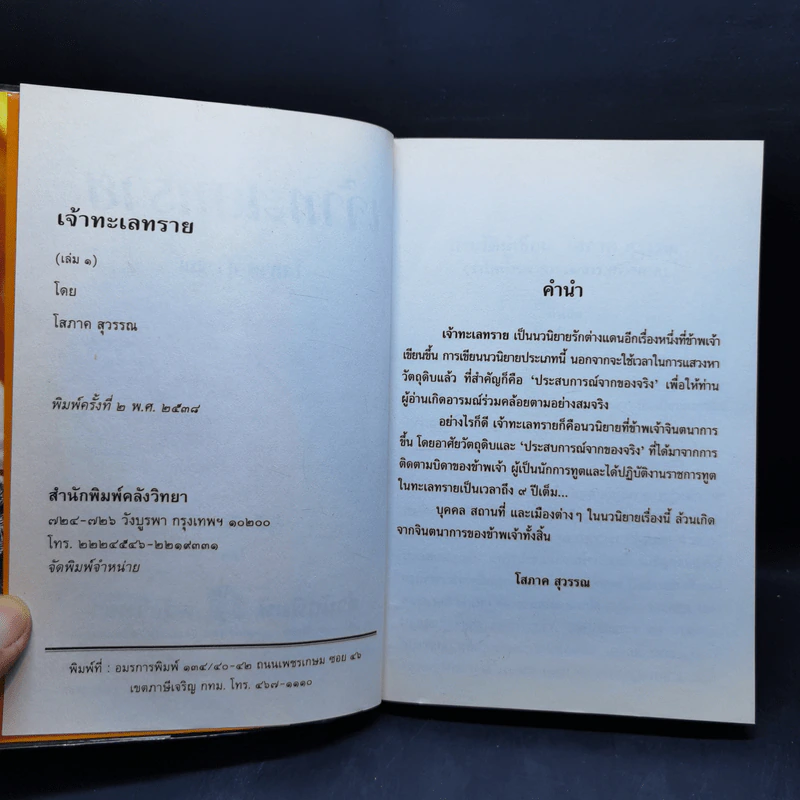 เจ้าทะเลทราย
(เล่ม ๑)
โดย
โสภาค สุวรรณ
พิมพ์ครั้งที่ ๒ พ.ศ. ๒๕๓๘
สำนักพิมพ์คลังวิทยา
๗๒๔-๗๒๖ วังบูรพา กรุงเทพฯ ๑๐๒๐๐
โทร. ๒๒๒๔๕๔๖-๒๒๑๙๓๓๑
จัดพิมพ์จำหน่าย
พิมพ์ที่ : อมรการพิมพ์ ๑๓๔/๔๐-๔๒ ถนนเพชรเกษม ซอย ๔๖
เขตภาษีเจริญ กทม. โทร. ๔๖๗-๑๑๑๐
คำนำ
เจ้าทะเลทราย เป็นนวนิยายรักต่างแดนอีกเรื่องหนึ่งที่ข้าพเจ้า
เขียนขึ้น การเขียนนวนิยายประเภทนี้ นอกจากจะใช้เวลาในการแสวงหา
วัตถุดิบแล้ว ที่สำคัญก็คือ ‘ประสบการณ์จากของจริง’ เพื่อให้ท่าน
ผู้อ่านเกิดอารมณ์ร่วมคล้อยตามอย่างสมจริง
อย่างไรก็ดี เจ้าทะเลทรายก็คือนวนิยายที่ข้าพเจ้าจินตนาการ
ขึ้น โดยอาศัยวัตถุดิบและ ‘ประสบการณ์จากของจริง’ ที่ได้มาจากการ
ติดตามบิดาของข้าพเจ้า ผู้เป็นนักการทูตและได้ปฏิบัติงานราชการทูต
ในทะเลทรายเป็นเวลาถึง ๙ ปีเต็ม...
บุคคล สถานที่ และเมืองต่างๆ ในนวนิยายเรื่องนี้ ล้วนเกิด
จากจินตนาการของข้าพเจ้าทั้งสิ้น
โสภาค สุวรรณ